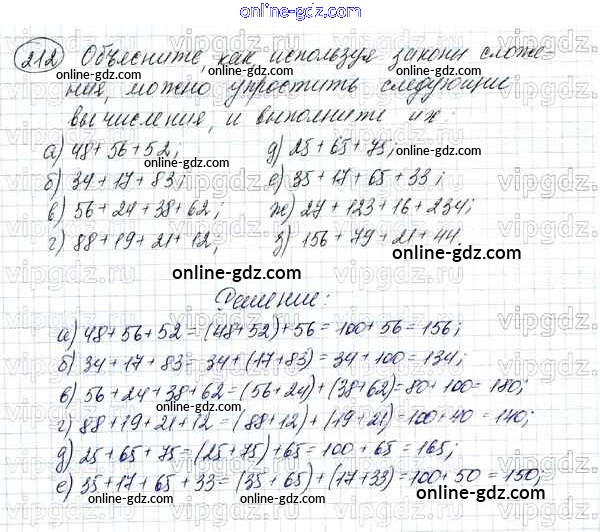 online-gdz.com
212 Объясните, как, используя законы сложе-
ния, можно упростить следующие
вычисления, и выполните их:
а) 48+56+52; д) 25+65+75;
б) 34+17+83; е) 35+17+65+33;
в) 56+24+38+62; ж) 27+123+16+234;
г) 88+19+21+12; з) 156+79+21+44.
Решение:
а) 48+56+52=(48+52)+56=100+56=156;
б) 34+17+83=34+(17+83)=34+100=134;
в) 56+24+38+62=(56+24)+(38+62)=80+100=180;
г) 88+19+21+12=(88+12)+(19+21)=100+40=140;
д) 25+65+75=(25+75)+65=100+65=165;
е) 35+17+65+33=(35+65)+(17+33)=100+50=150;